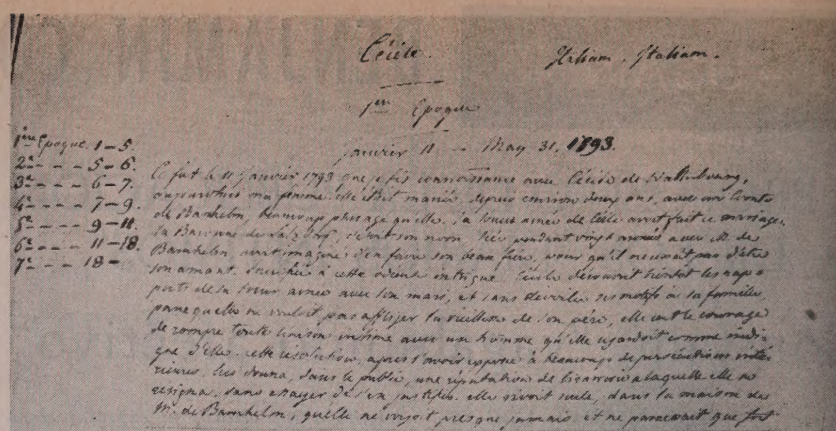 Cécile. Italiam. Italiam.
1ère Epoque
Janvier 11 - May 31. 1793.
1ère Epoque. 1-5.
2e - - - 5-6.
3e - - - 6-7.
4e - - - 7-9.
5e - - - 9-11.
6e - - - 11-18.
7e - - - 18-
Ce fut le 11 Janvier 1793 que je fis connaissance avec Cécile de Walterbourg,
aujourdhui ma femme. elle était mariée, depuis environ deux ans, avec un Comte
de Barnhelm, beaucoup plus agé qu'elle. la soeur ainée de Cécile avait fait ce mariage.
la Baronne de Saltzdorf, c'était son nom, liée pendant vingt années avec M. de
Barnhelm, avait imaginé d'en faire son beau frère, pour qu'il ne cessat pas d'être
son amant. Sacrifiée à cette odieuse intrigue, Cécile découvrit bientot les rap-
ports de sa soeur ainée avec son mari, et sans dévoiler ses motifs à sa famille,
parce qu'elle ne voulait pas affliger la vieillesse de son père, elle eut le courage
de rompre toute liaison intime avec un homme qu'elle regardait comme indi-
gne d'elle. cette résolution, après l'avoir exposée à beaucoup de persécutions inté-
rieures, lui donna, dans le public, une réputation de bizarrerie à laquelle elle se
résigna, sans essayer de s'en justifier. elle vivait seule, dans la maison de
M. de Barnhelm, qu'elle ne voyait presque jamais, et ne paraissait que fort